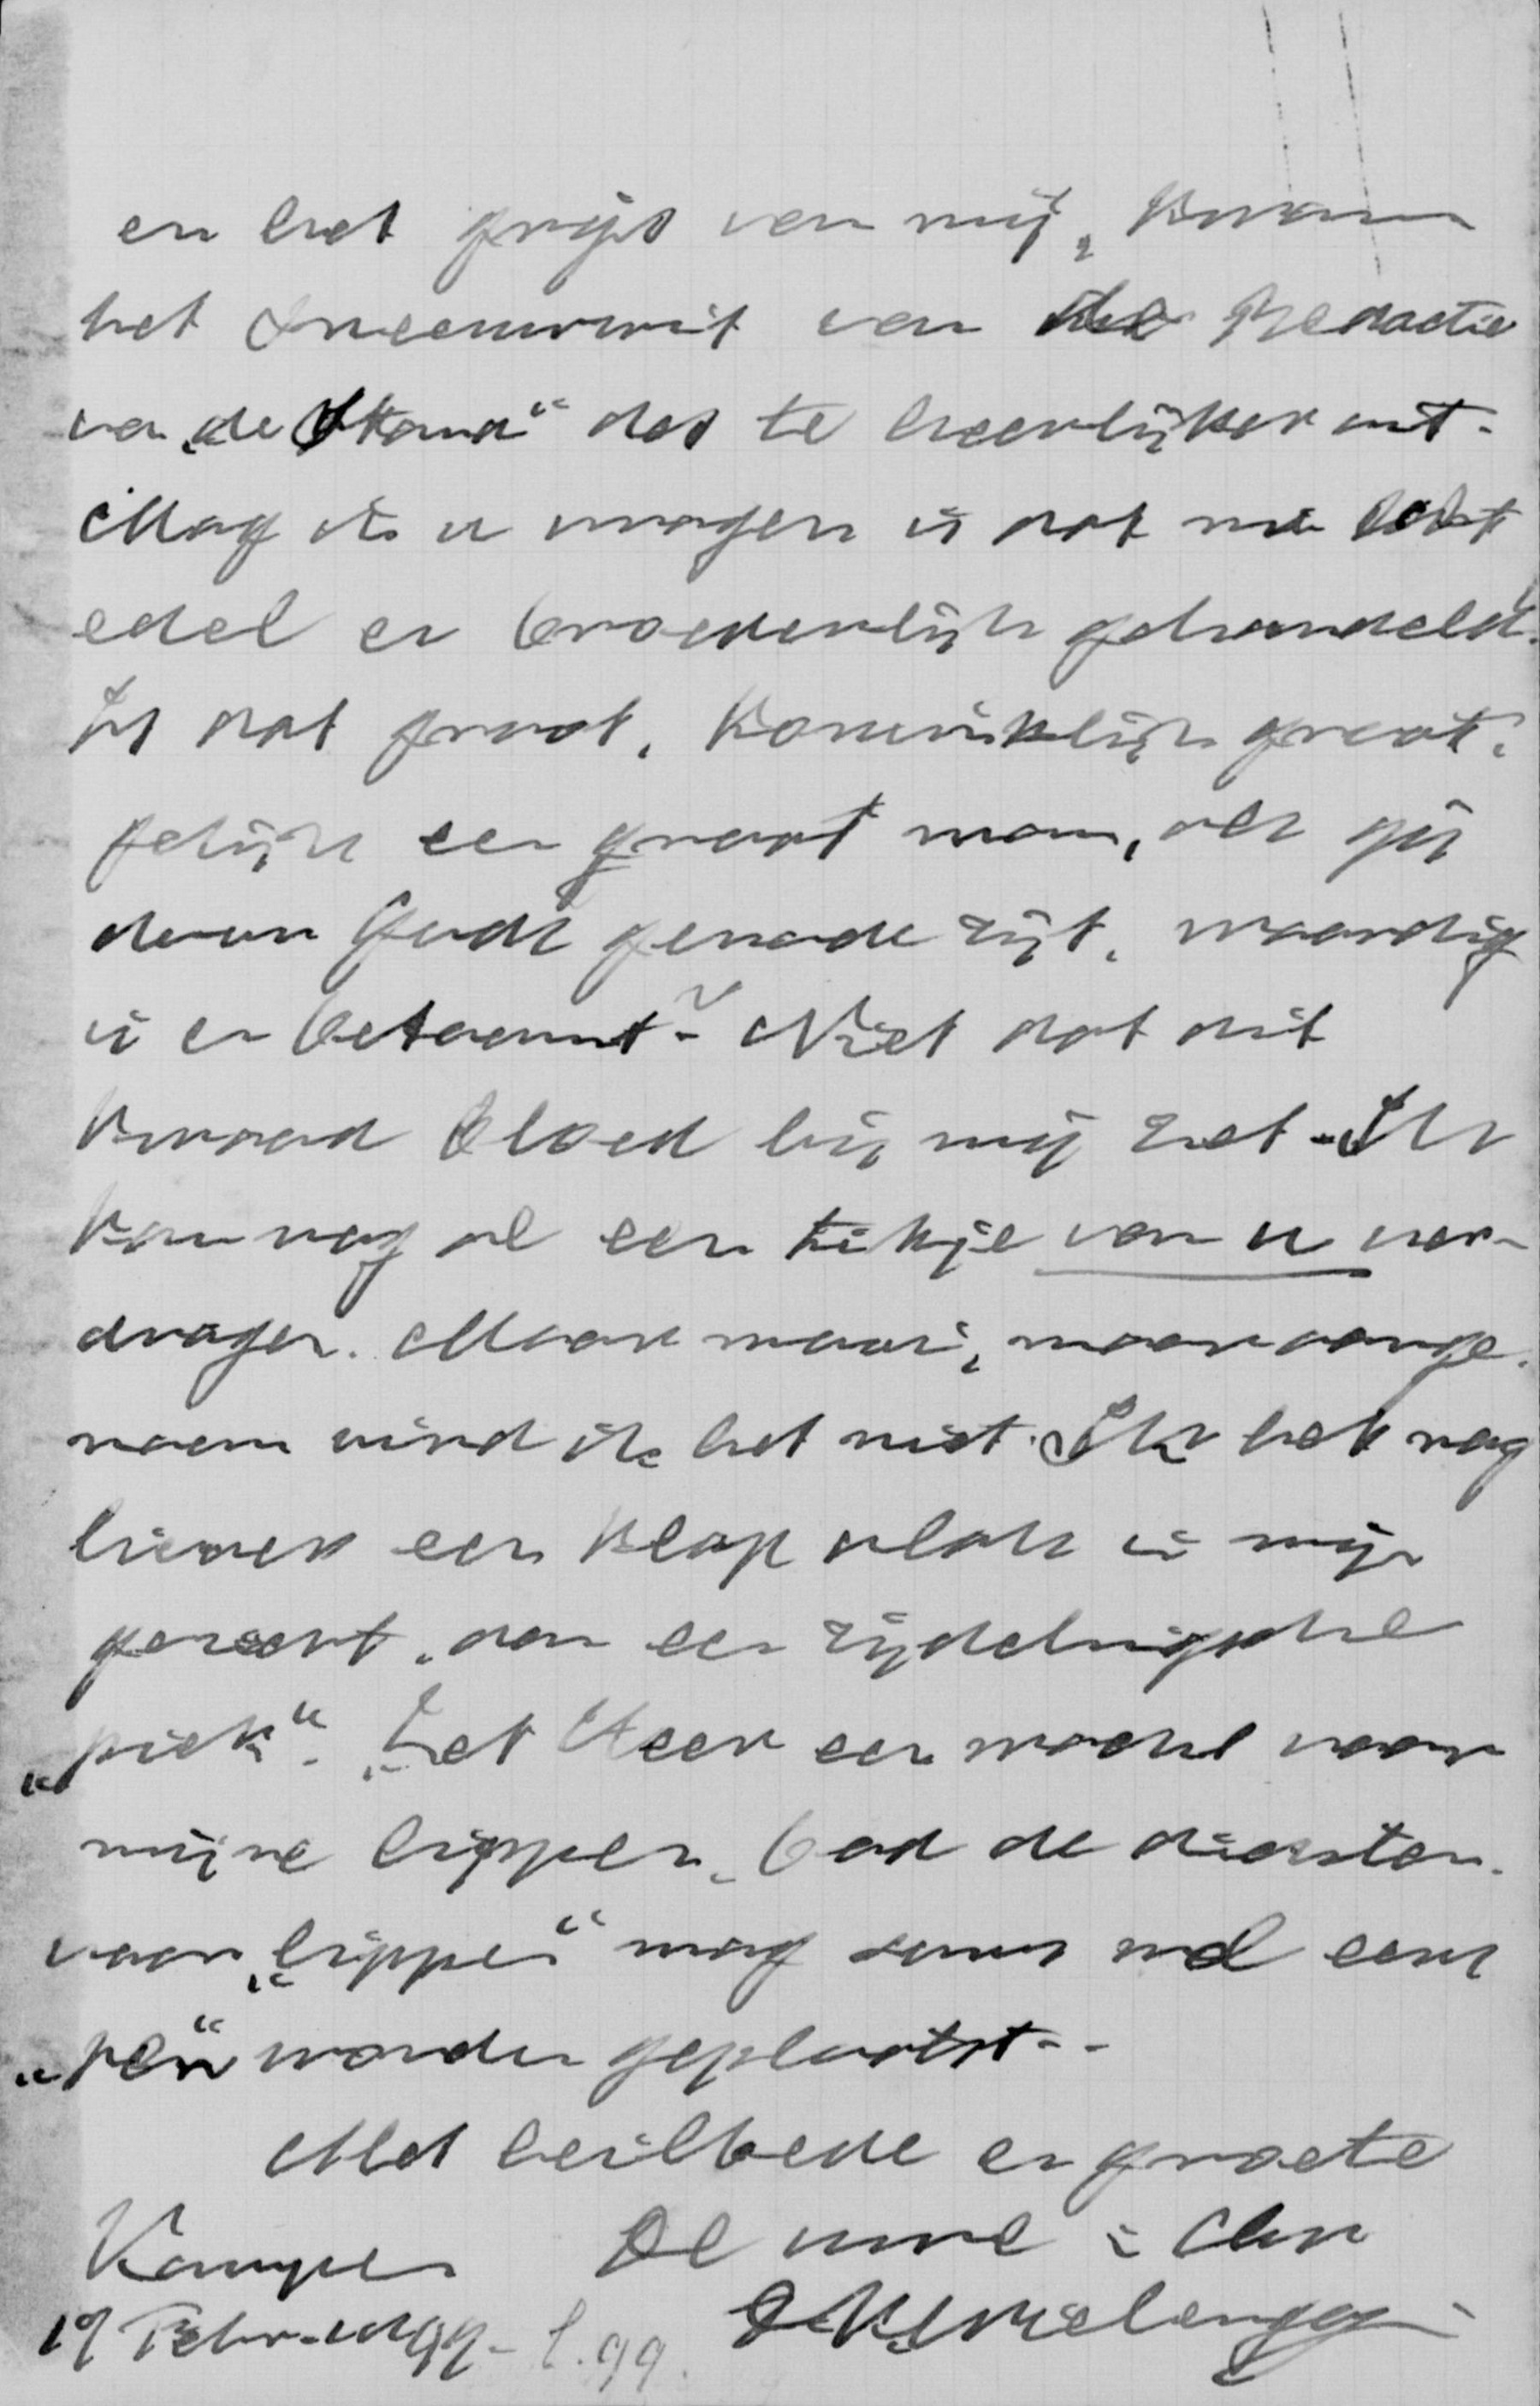 en het grijs van mij, kwam
het sneeuwwit van de Redactie
van „de Stand“ des te heerlijker uit.
Mag ik u vragen is dat nu echt
edel en broederlijk gehandeld?
Is dat groot, koninklijk groot,
gelijk een groot man, als gij
door Gods genade zijt, waardig
is en betaamt? Niet dat dit
kwaad bloed bij mij zet. Ik
kan nog al een tikje van u ver-
dragen. Maar mooi, maar aange-
naam vind ik het niet. Ik heb nog
liever een klap vlak in mijn
gezicht, dan een zijdelingsche
„piek“. „Zet Heer een wacht voor
mijne lippen, bad de dichter.
voor „lippen“ mag soms wel eens
„pen“ worden geplaatst.
Met heilbede en groete
Kampen De uwe in Chr.
19 Febr. 99